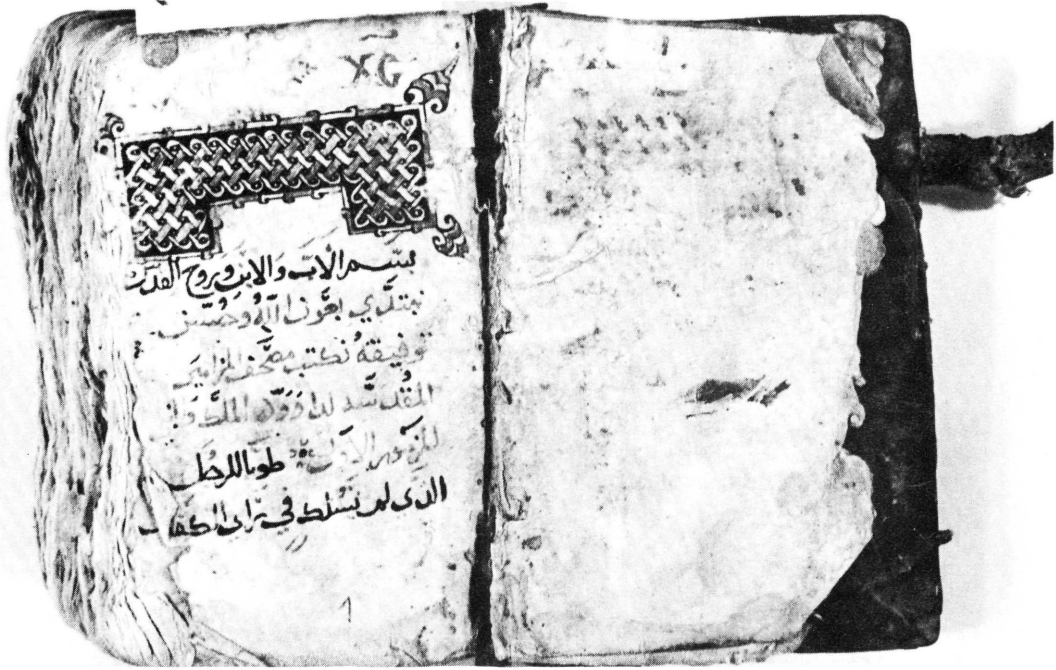 ΧС
بسم الاب والابن وروح القدس
نبتدي بعون الله وحسن
توفيقه نكتب مصحف المزامير
المقدسه لداوود الملك
المزمور الاول طوبا للرجل
الدي لم يسلك في راي الكفار
1